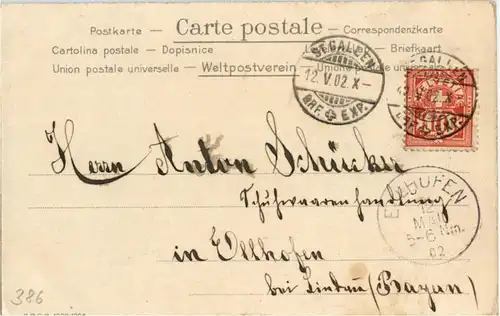 Postkarte — Carte postale — Correspondenzkarte
Cartolina postale — Dopisnice — Briefkaart
Union postale universelle — Weltpostverein — Unione postale universale
ST. GALLEN
12. V. 02. X –
BRF. EXP.
ST. GALLEN
BRF. EXP.
HELVETIA
10
Herrn Anton Schücker
Schuhwaarenhandlung
in Ellhofen
bei Lindau (Bayern)
ELLHOFEN
12
MAI
5–6 Nm.
02
386